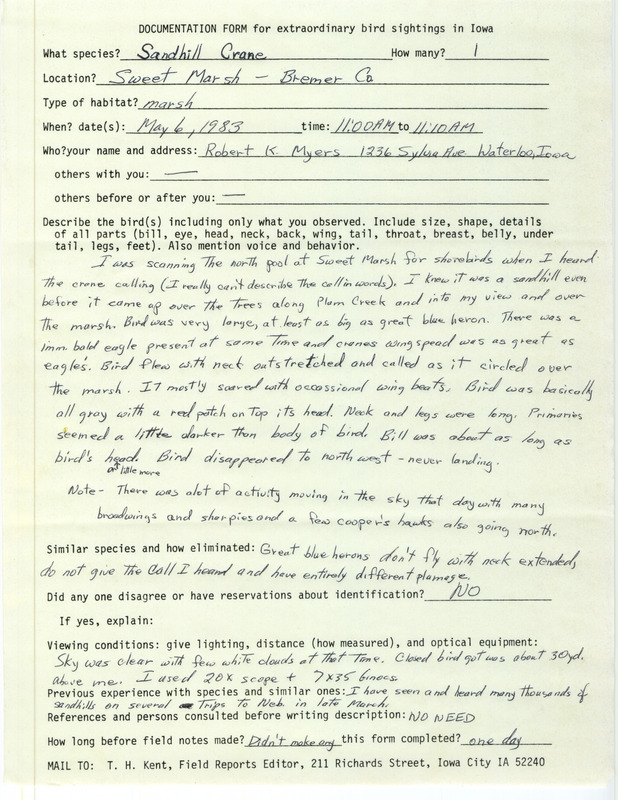 DOCUMENTATION FORM for extraordinary bird sightings in Iowa
What species? Sandhill Crane How many? 1
Location? Sweet Marsh - Bremer Co
Type of habitat? marsh
When? date(s): May 6, 1983 time: 11:00AM to 11:10AM
Who? your name and address: Robert K. Myers 1236 Sylvia Ave Waterloo, Iowa
others with you: —
others before or after you: —
Describe the bird(s) including only what you observed. Include size, shape, details
of all parts (bill, eye, head, neck, back, wing, tail, throat, breast, belly, under
tail, legs, feet). Also mention voice and behavior.
I was scanning the north pool at Sweet Marsh for shorebirds when I heard
the crane calling (I really can't describe the call in words). I knew it was a sandhill even
before it came up over the trees along Plum Creek and into my view and over
the marsh. Bird was very large, at least as big as great blue heron. There was a
imm. bald eagle present at same time and cranes wingspead was as great as
eagle's. Bird flew with neck outstretched and called as it circled over
the marsh. It mostly soared with occassional wing beats. Bird was basically
all gray with a red patch on top its head. Neck and legs were long. Primaries
seemed a little darker than body of bird. Bill was about as long as
bird's head. Bird disappeared to north west - never landing.
or little more
Note - There was alot of activity moving in the sky that day with many
broadwings and sharpies and a few cooper's hawks also going north.
Similar species and how eliminated: Great blue herons don't fly with neck extended,
do not give the call I heard and have entirely different plumage.
Did any one disagree or have reservations about identification? NO
If yes, explain:
Viewing conditions: give lighting, distance (how measured), and optical equipment:
Sky was clear with few white clouds at that time. Closed bird got was about 30yd.
above me. I used 20X scope + 7x35 binocs.
Previous experience with species and similar ones: I have seen and heard many thousands of
sandhills on several trips to Neb. in late March.
References and persons consulted before writing description: NO NEED
How long before field notes made? Didn't make any this form completed? one day
MAIL TO: T. H. Kent, Field Reports Editor, 211 Richards Street, Iowa City IA 52240